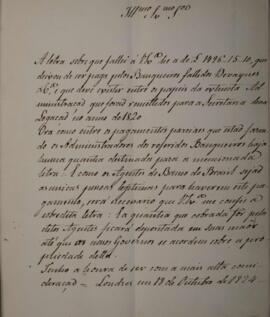 Illmo e Exmo Snr
A letra sobre que fallei a V.Exa he a de £ 1496.15.10, que
deixou de ser paga pelos Banqueiros fallidos
e que deve existir entre os papeis da extincta Ad
ministração que forão remettidos para a Secretaria dessa
Legação no anno de 1820
Ora como entre os pagamentos parciaes que estão fazen
do os Administradores dos referidos Banqueiros haja
huma quantia destinada para a mencionada
letra: e como os Agentes do Banco do Brasil sejão
as unicas pessoas legitimas para haverem este pa
gamento, será necessario que V.Exa me confie a
sobredita letra: e a quantia que cobrada for pelos
ditos Agentes ficará depositada em suas mãos
até que os nossos Governos se acordem sobre a pro
priedade della.
Tenho a honra de ser com a mais alta consi
deração = Londres em 18 de Outubro de 1824 =